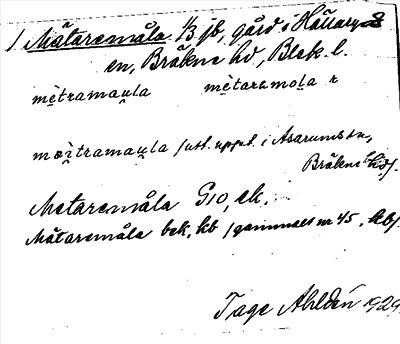 1 Mätaremåla 1/3 jb, gård i Hällaryds
sn, Bräkne hd, Blek. l.
mètramau̯la mètaremola r
mæ̀tramau̯la /utt. uppt. i Asarums sn,
Bräkne hd/.
Mataremåla G10, ek.
Mätaremåla bek, kb /gammalt nr 45, kb/.
Tage Ahldén 1929